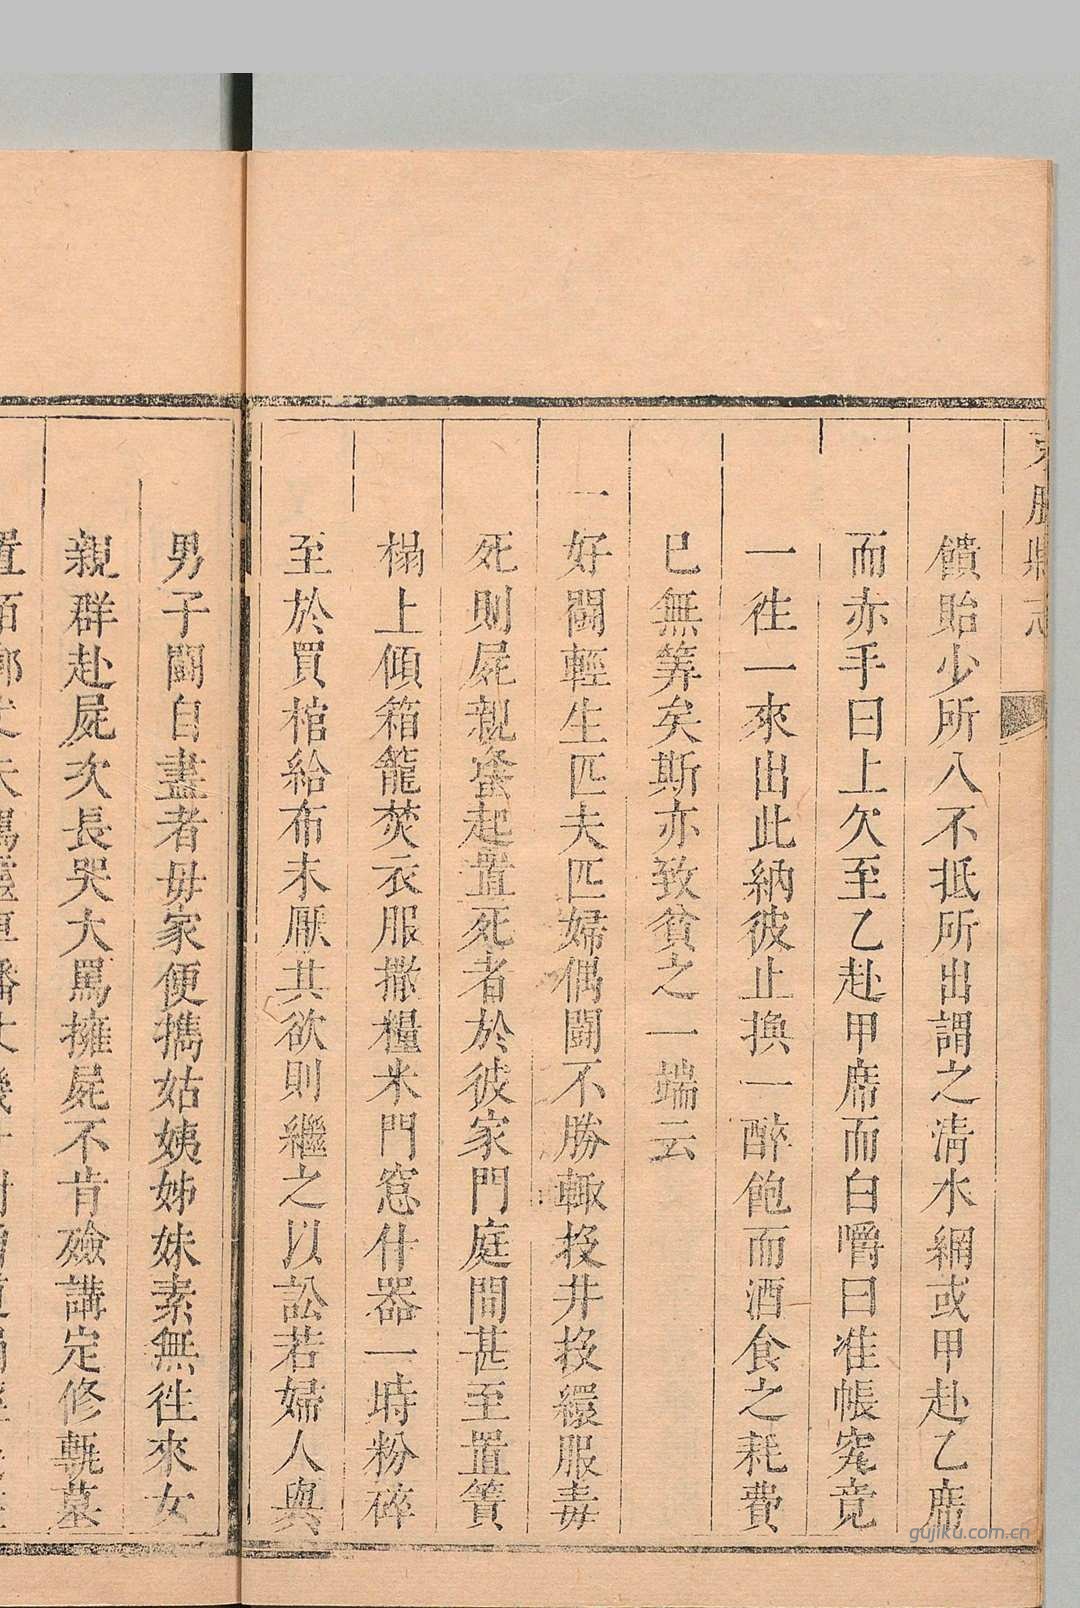 饋貽少所入不抵所出謂之淸水網或甲赴乙席
而亦手曰上欠至乙赴甲席而白嚼曰准帳究竟
一徃一來出此納彼止換一醉飽而酒食之耗費
巳無筭矣斯亦致貧之一端云
一好鬪輕生匹夫匹婦偶鬪不勝輙投井投繯服毒
死則屍親蜂起置死者於彼家門庭間甚至置簀
榻上傾箱籠焚衣服撒糧米門窻什器一時粉碎
至於買棺給布未厭其欲則繼之以訟若婦人與
男子鬪自盡者毋家便攜姑姨姊妹素無徃來女
親群赴屍次長哭大罵擁屍不肯殮講定修甎墓
gujiku.com.cn